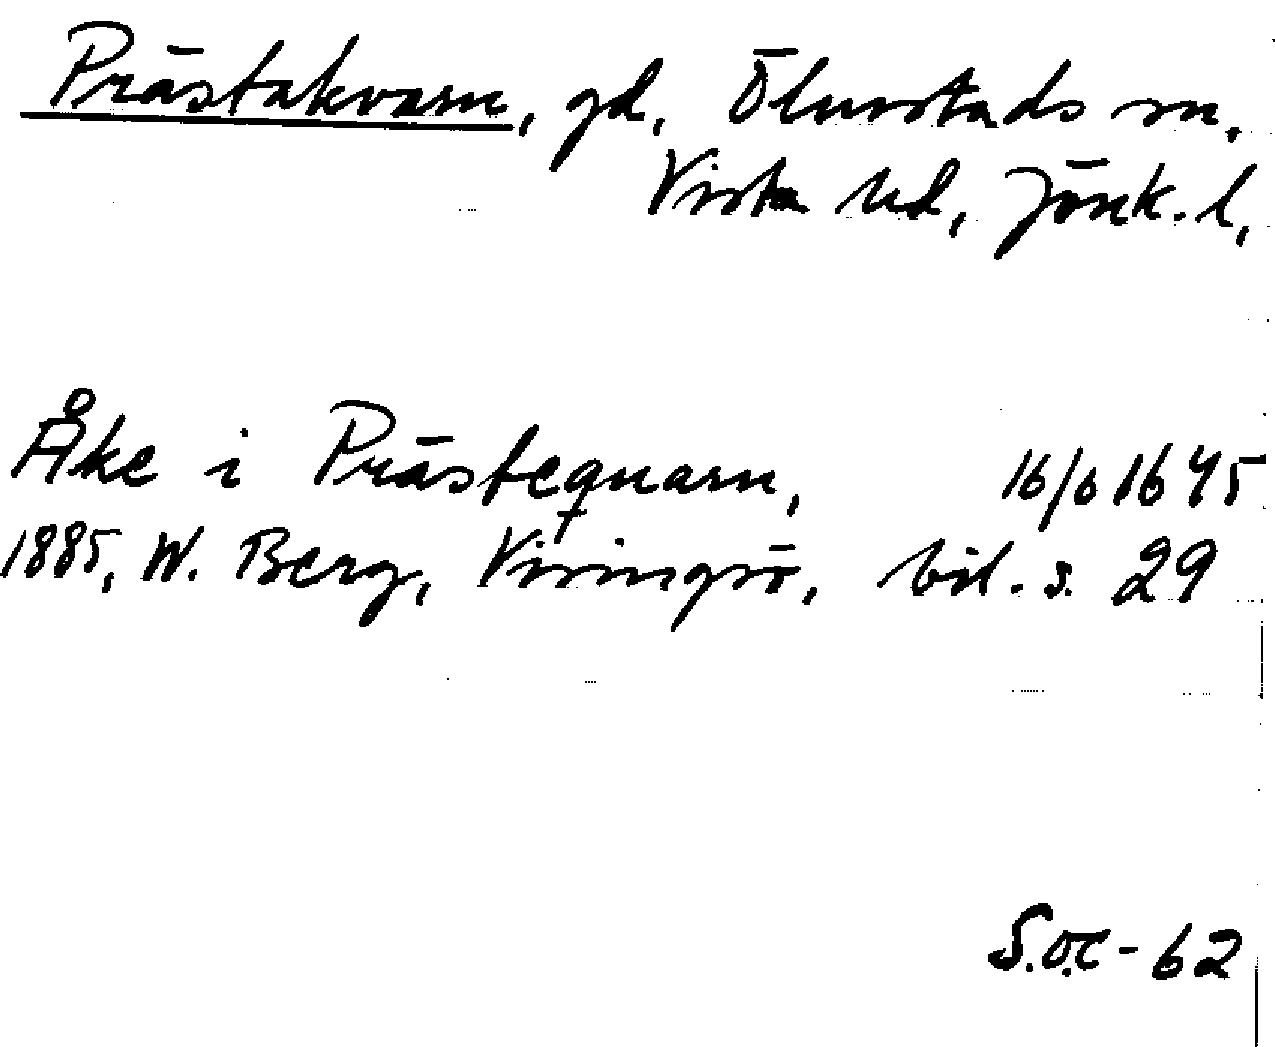 Prästakvarn, gd, Ölmstads sn,
Vista hd, Jönk. l,
Åke i Prästeqvarn, 16/6 1645
1885, W. Berg, Visingsö, bil. s. 29
S.O.C - 62